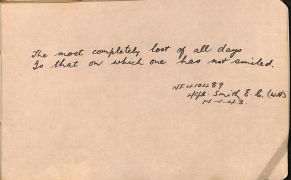 The most completely lost of all days
Is that on which one has not smiled.
NF410489
Smith E. C. (WR)
14-1-43.